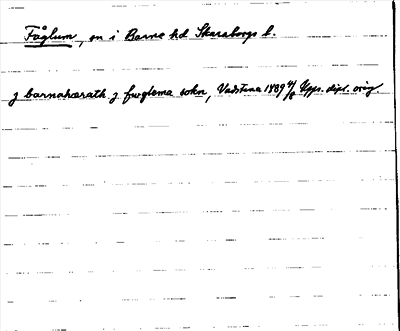 Fåglum, sn i Barne hd Skaraborgs l.
j barnahærath j fwglema sokn, Vadstena 1439 4/8 Upps. dipl. orig.